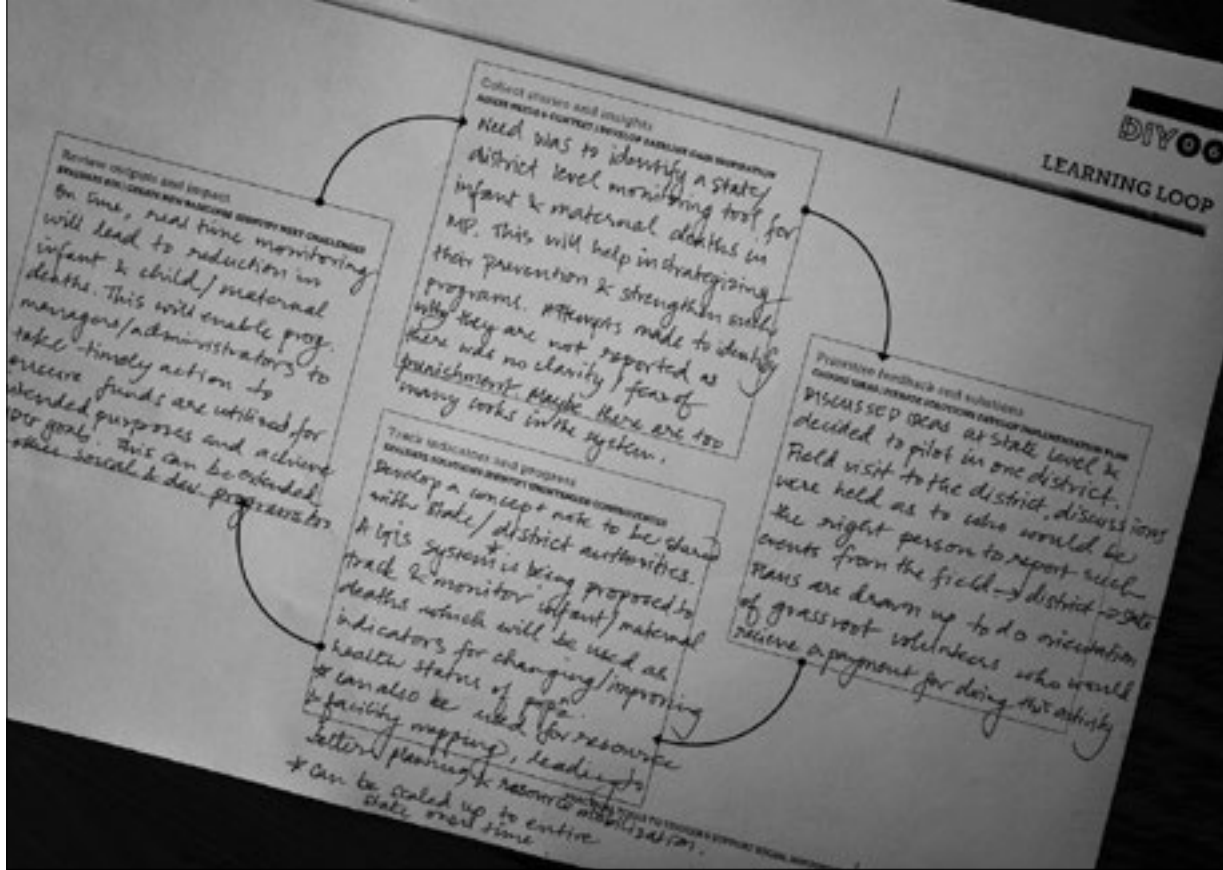 DIY06
LEARNING LOOP
Collect stories and insights
Need was to identify a state/
district level monitoring tool for
infant & maternal deaths in
MP. This will help in strategizing
their prevention & strengthen such
programs. Attempts made to identify
why they are not reported as
there was no clarity, fear of
punishment. Maybe there are too
many cooks in the system.
Prioritise feedback and solutions
DISCUSSED IDEAS at state level &
decided to pilot in one district.
Field visit to the district, discussions
were held as to who would be
the right person to report such
events from the field → district → state
Plans are drawn up to do orientation
of grassroot volunteers who would
recieve a payment for doing this activity
Track indicators and progress
Develop a concept note to be shared
with state/district authorities.
A GIS system is being proposed to
track & monitor infant/maternal
deaths which will be used as
indicators for changing/improving
health status of
* can also be used for resource
& facility mapping, leading to
better planning & resource mobilization.
* can be scaled up to entire
state over time.
Review outputs and impact
On time, real time monitoring
will lead to reduction in
infant & child/maternal
deaths. This will enable prog.
managers/administrators to
take timely action to
funds are utilized for
purposes and achieve
goals. This can be extended
social & dev.